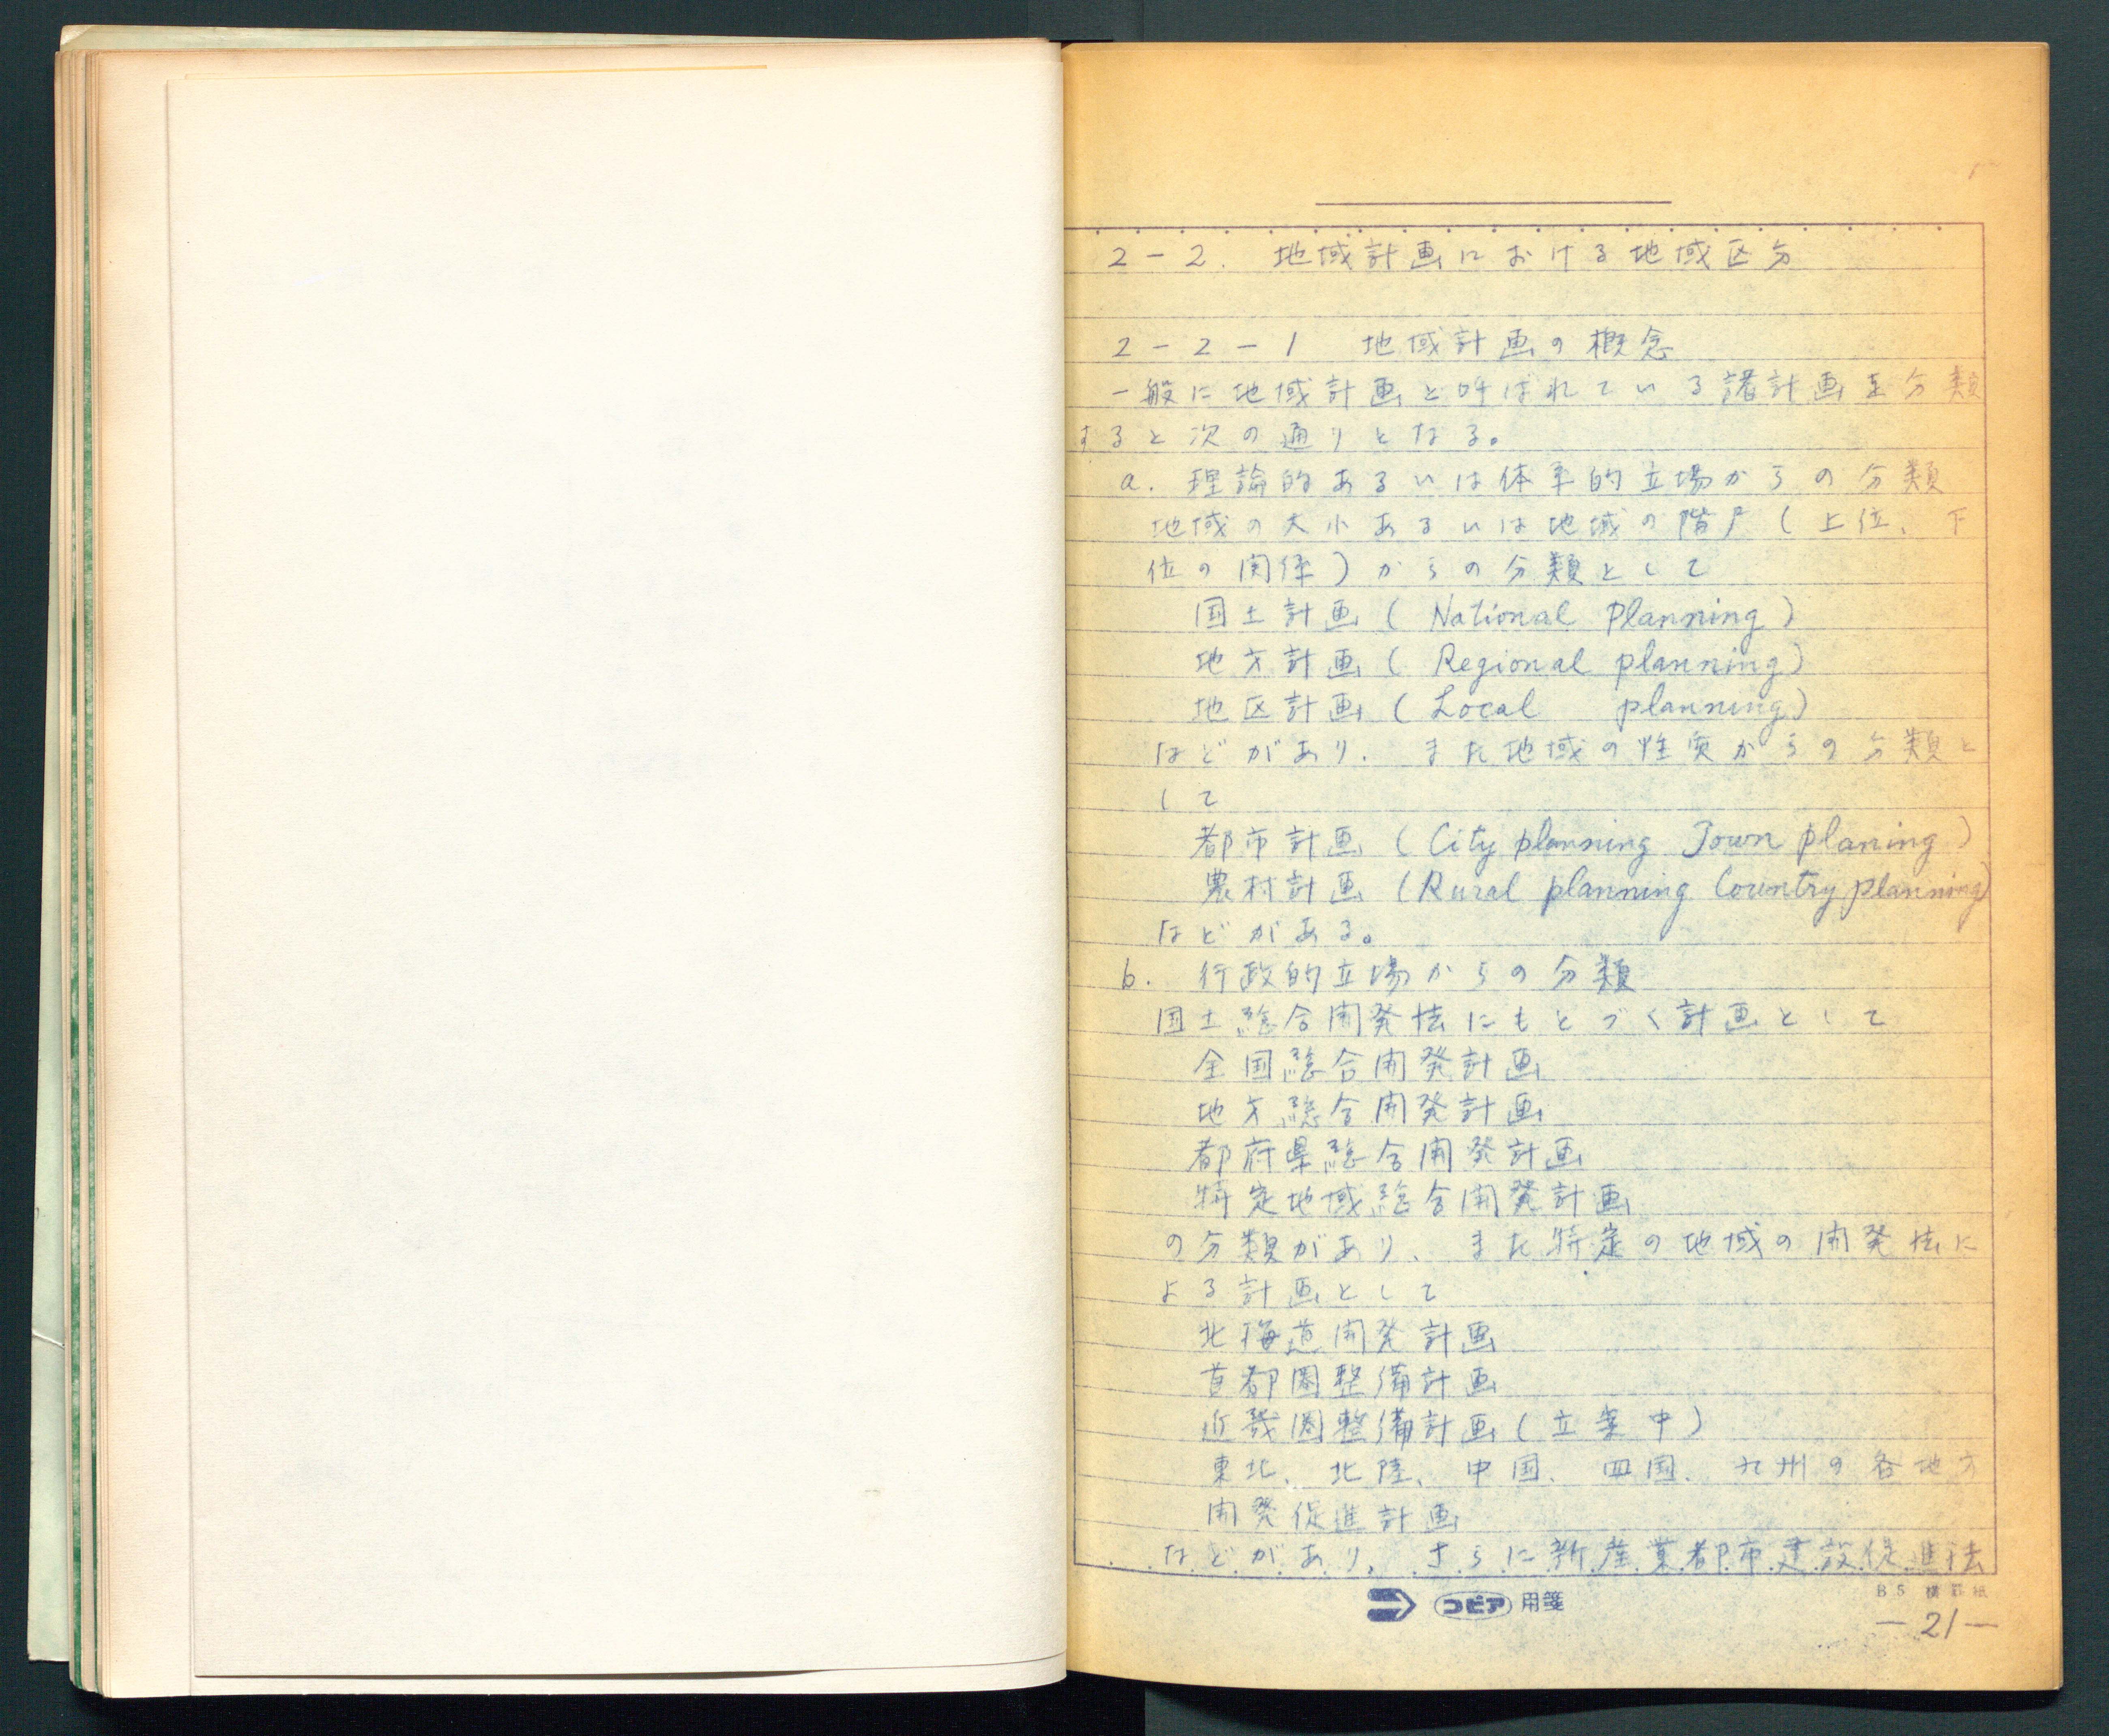 2-2. 地域計画における地域区分
2-2-1 地域計画の概念
一般に地域計画と呼ばれている諸計画を分類
すると次の通りとなる。
a. 理論的あるいは体系的立場からの分類
地域の大小あるいは地域の階層(上位、下
位の関係)からの分類として
国土計画(National Planning)
地方計画(Regional planning)
地区計画(Local planning)
などがあり、また地域の性質からの分類と
して
都市計画(City planning Town planing)
農村計画(Rural planning Country planning)
などがある。
b. 行政的立場からの分類
国土総合開発法にもとづく計画として
全国総合開発計画
地方総合開発計画
都府県総合開発計画
特定地域総合開発計画
の分類があり、また特定の地域の開発法に
よる計画として
北海道開発計画
首都圏整備計画
近畿圏整備計画(立案中)
東北、北陸、中国、四国、九州の各地方
開発促進計画
などがあり、さらに新産業都市建設促進法
コピア 用箋
B5 横罫紙
-21-